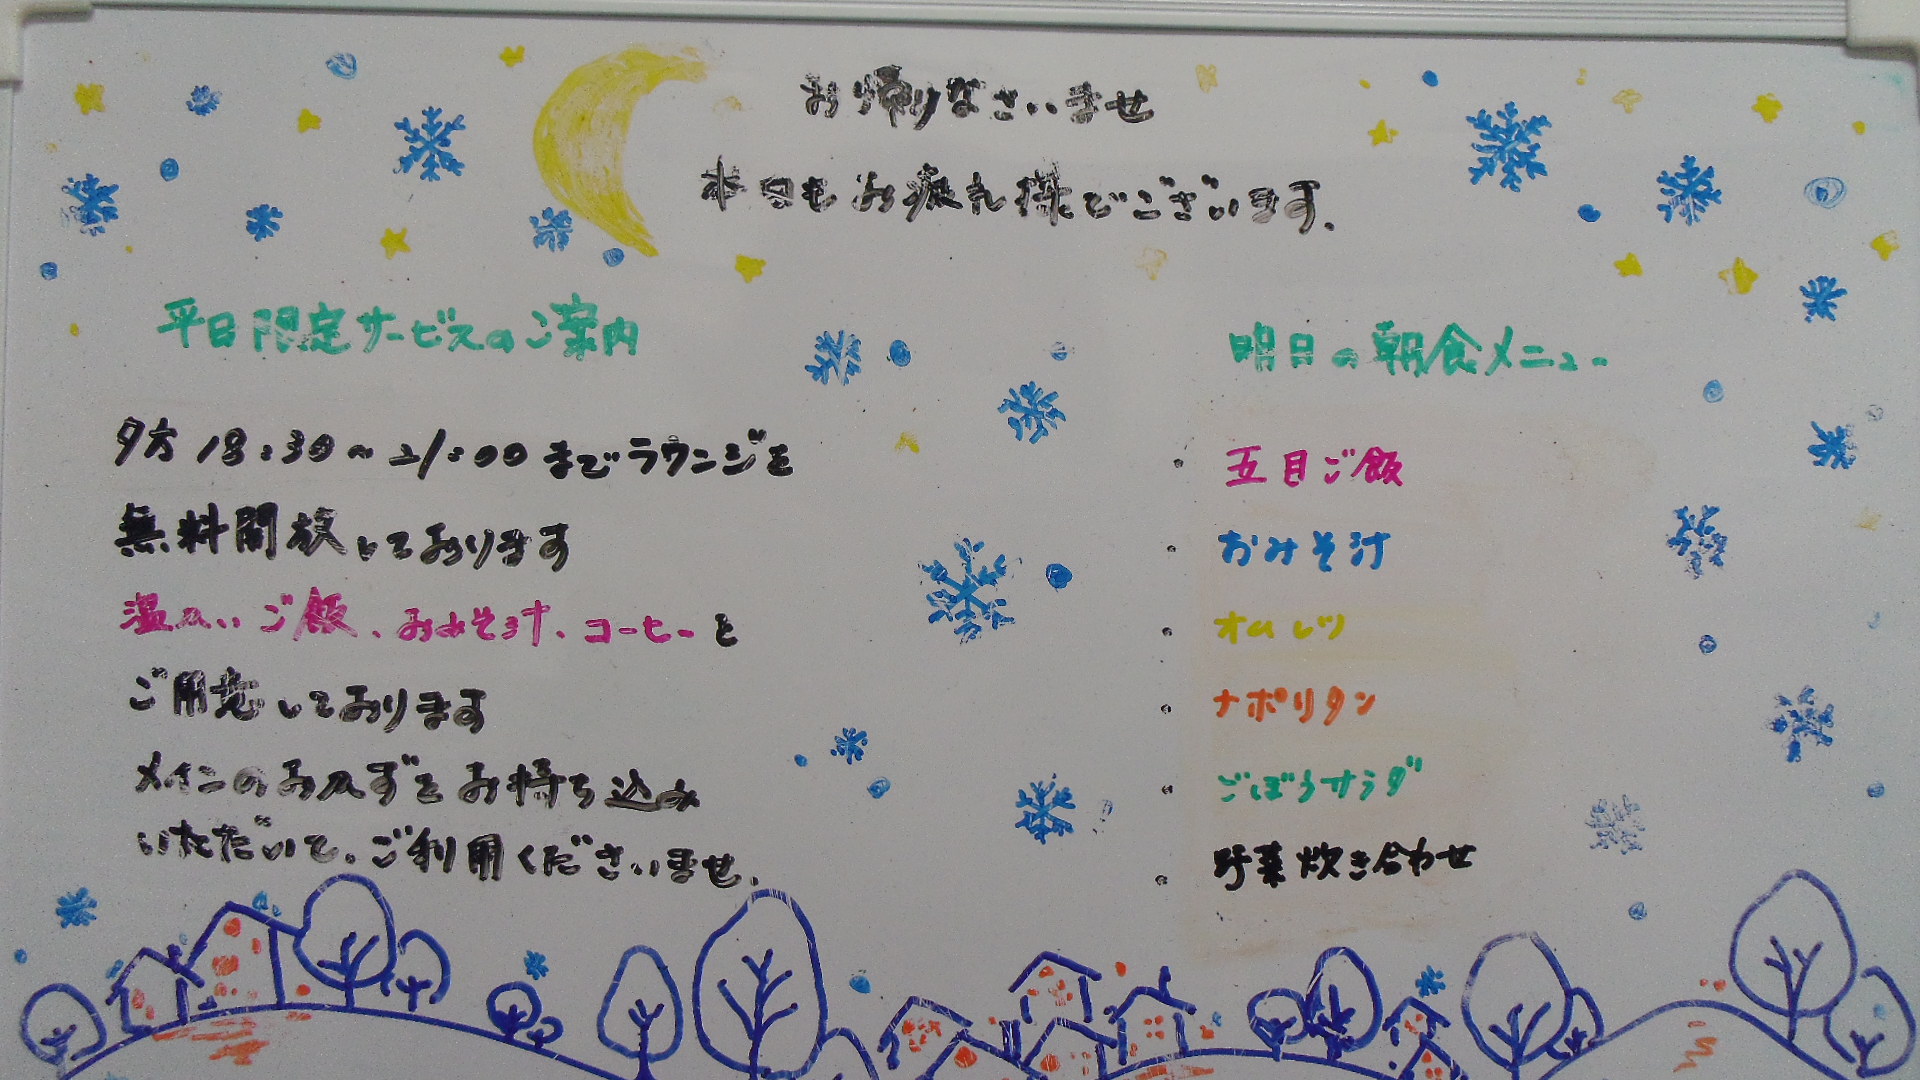 お帰りなさいませ
本日もお疲れ様でございます.
平日限定サービスのご案内
夕方 18:30~21:00 までラウンジを
無料開放しております
温かいご飯、おみそ汁、コーヒーを
ご用意しております
メインのおかずをお持ち込み
いただいて、ご利用くださいませ.
明日の朝食メニュー
・五目ご飯
・おみそ汁
・オムレツ
・ナポリタン
・ごぼうサラダ
・野菜炊き合わせ